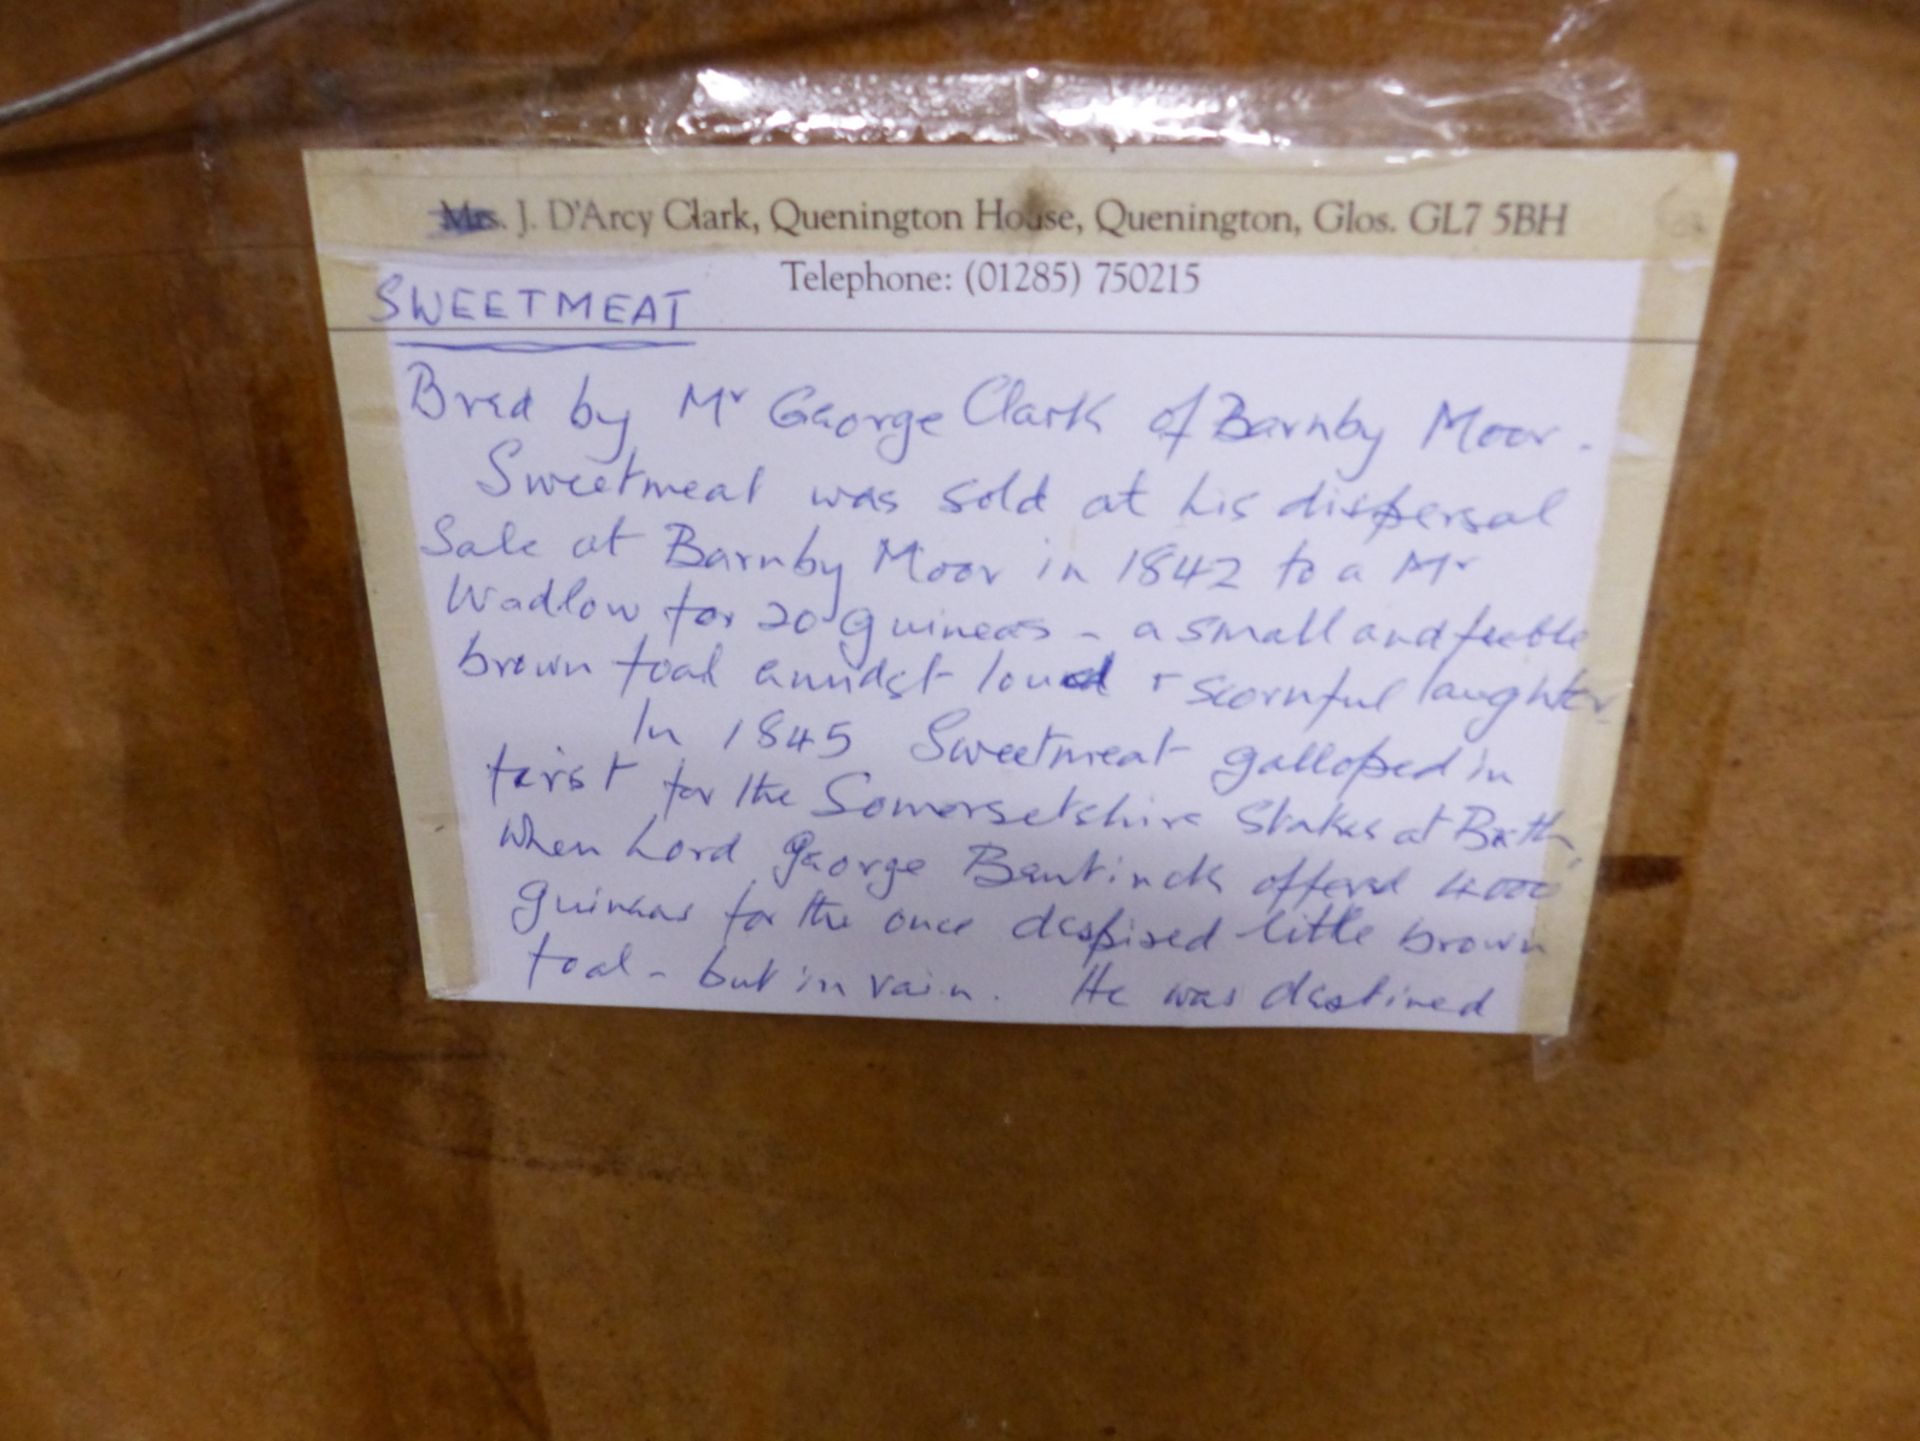 Mrs. J. D'Arcy Clark, Quenington House, Quenington, Glos. GL7 5BH
Telephone: (01285) 750215
SWEETMEAT
Bred by Mr George Clark of Barnby Moor.
Sweetmeat was sold at his dispersal
Sale at Barnby Moor in 1842 to a Mr
Wadlow for 20 guineas - a small and feeble
brown foal amidst loud + scornful laughter.
In 1845 Sweetmeat galloped in
first for the Somersetshire Stakes at Bath,
When Lord George Bentinck offered 4000
guineas for the once despised little brown
foal - but in vain. He was destined